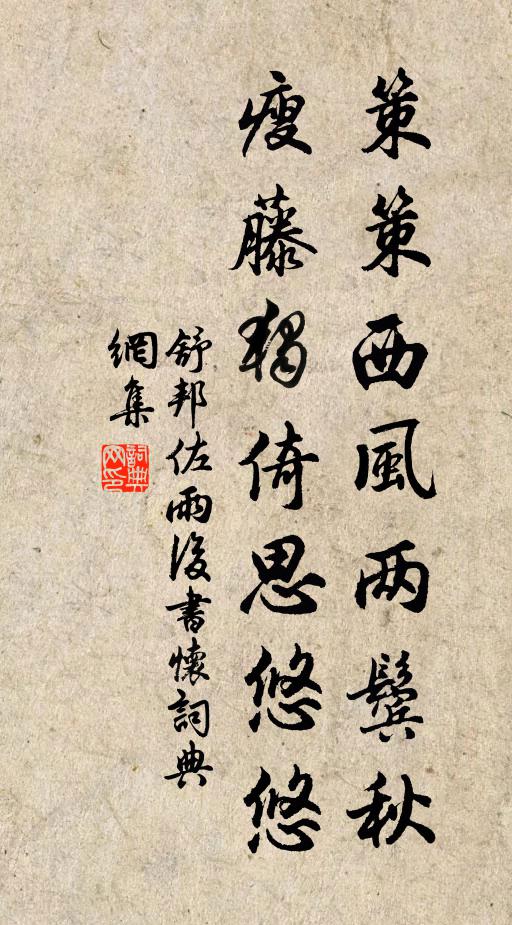 策策西風两鬢秋
瘦藤獨倚思悠悠
舒邦佐雨後書懷詞典
網集
詞典網印